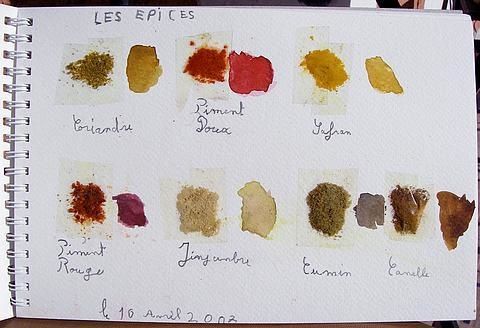 LES EPICES
Coriandre
Piment
Doux
Safran
Piment
Rouge
Jinjembre
Cumin
Canelle
le 16 Avril 2002